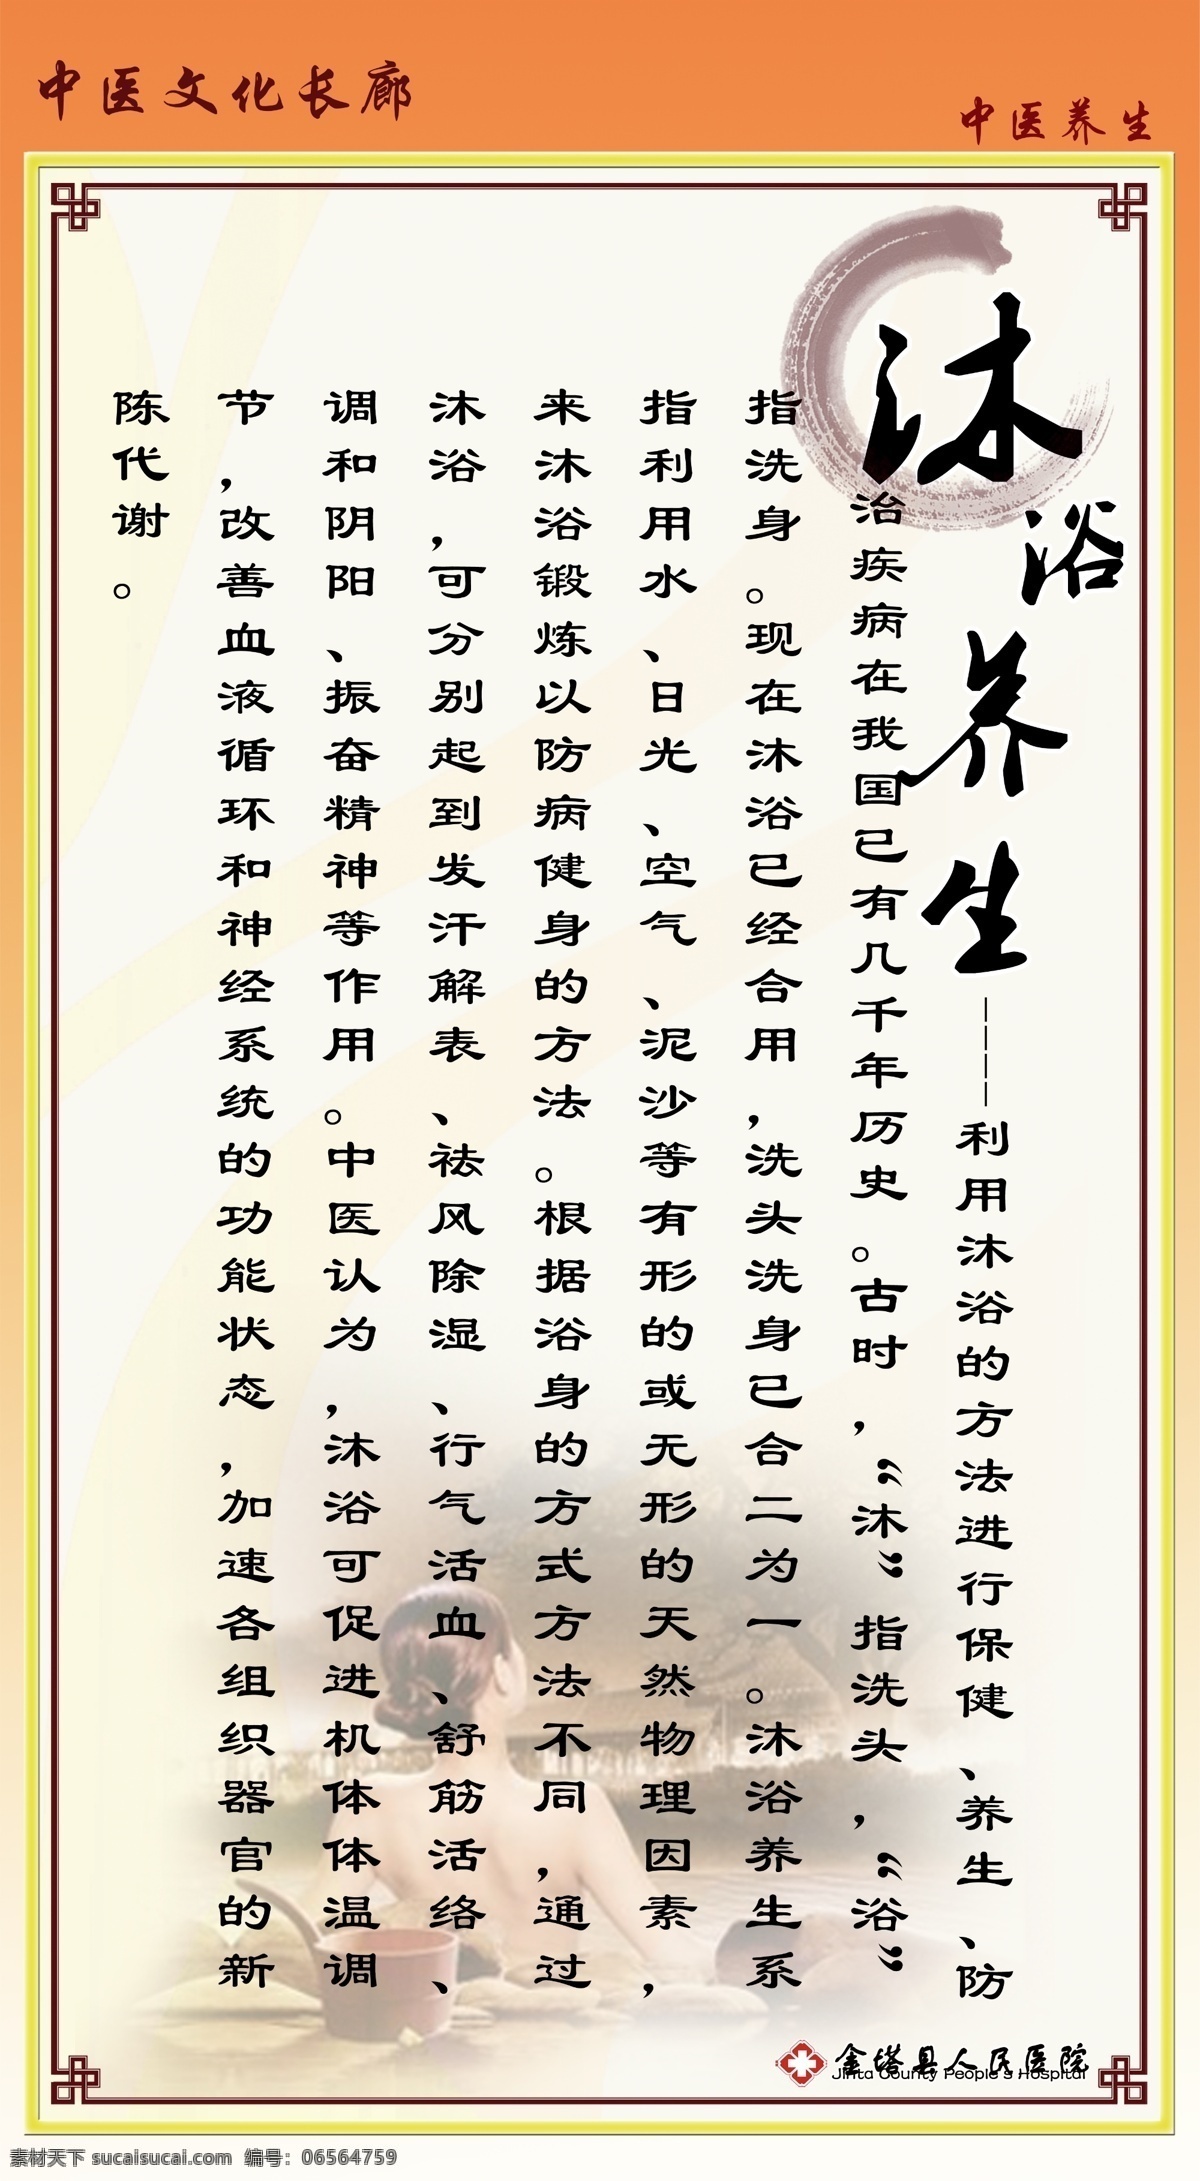 中医文化长廊
中医养生
沐浴养生————利用沐浴的方法进行保健、养生、防
治疾病在我国已有几千年历史。古时，“沐”指洗头，“浴”
指洗身。现在沐浴已经合用，洗头洗身已合二为一。沐浴养生系
指利用水、日光、空气、泥沙等有形的或无形的天然物理因素，
来沐浴锻炼以防病健身的方法。根据浴身的方式方法不同，通过
沐浴，可分别起到发汗解表、祛风除湿、行气活血、舒筋活络、
调和阴阳、振奋精神等作用。中医认为，沐浴可促进机体体温调
节，改善血液循环和神经系统的功能状态，加速各组织器官的新
陈代谢。
金塔县人民医院
Jinta County People's Hospital
素材天下 sucaisucai.com 编号：06564759